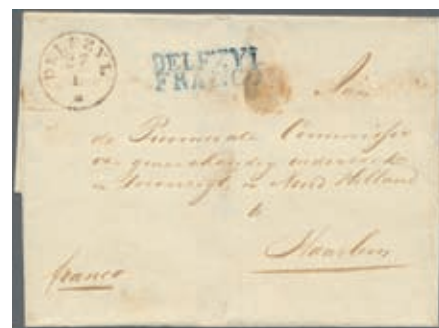 DELFZYL
27
1
DELFZYL
FRANCO
Aan
de Provinciale Commissie
van geneeskundig onderzoek
en Toevoorzigt in Noord Holland
te
Haarlem
franco